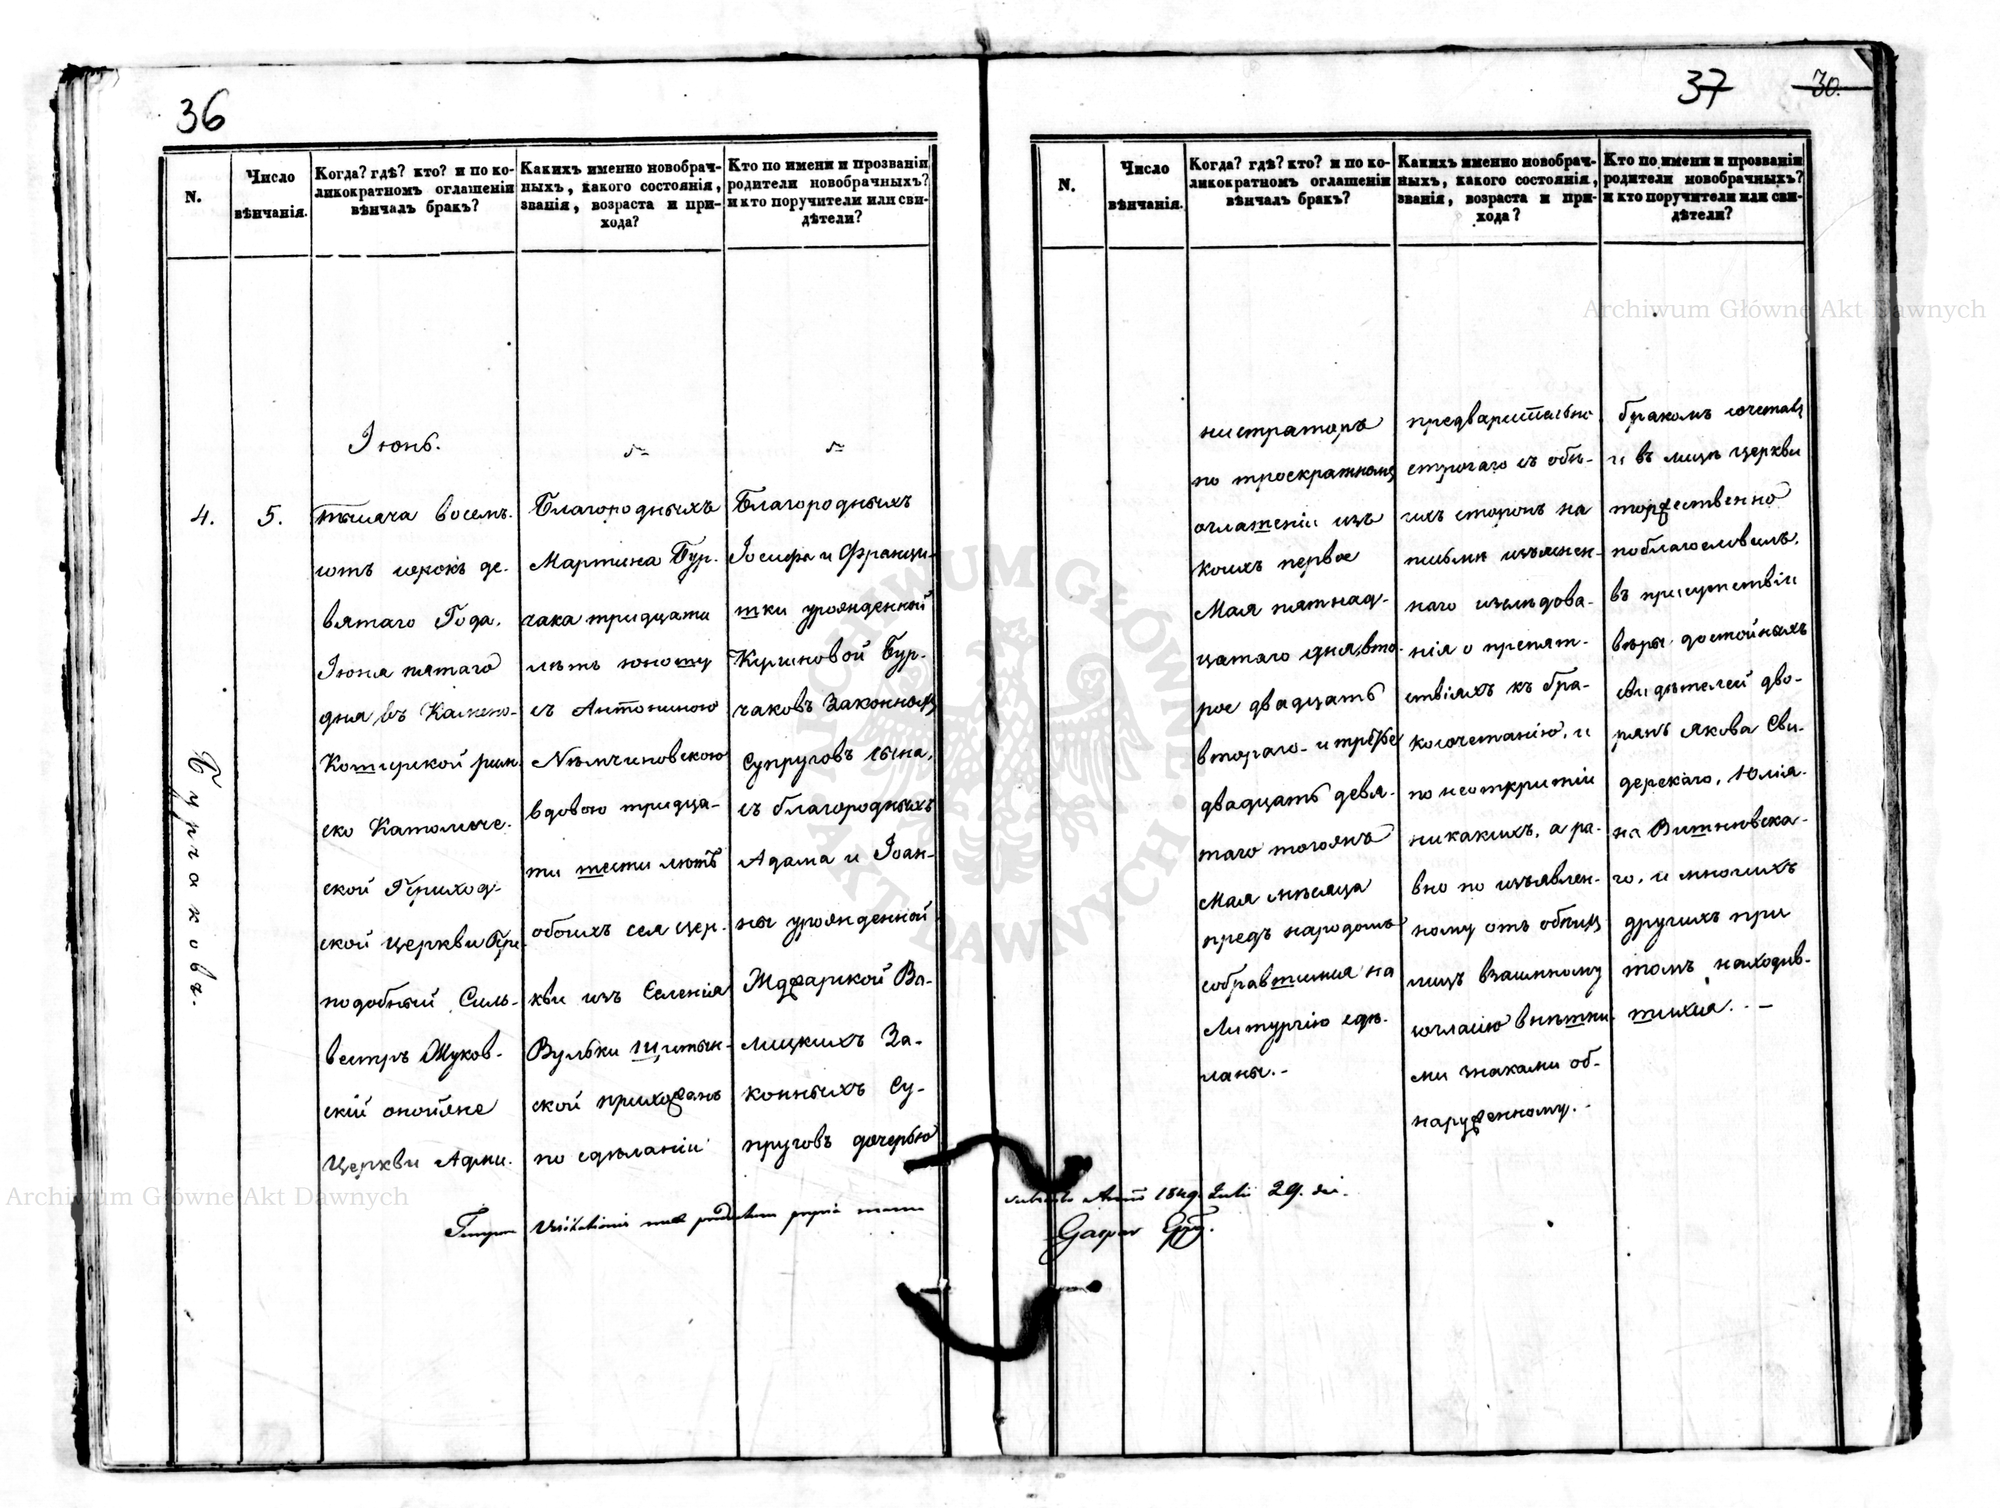 36
N.
Число
вѣнчанія.
Когда? гдѣ? кто? и по ко-
ликократномъ оглашеніи
вѣнчалъ бракъ?
Какихъ именно новобрач-
ныхъ, какого состоянія,
званія, возраста и при-
хода?
Кто по имени и прозванію
родители новобрачныхъ?
и кто поручители или сви-
дѣтели?
4.
Бурчаковъ.
5.
Іюнь.
тысяча восемъ-
сотъ сорокъ де-
вятаго Года,
Іюня пятаго
дня въ Камено-
Коширской рим-
ско Католиче-
ской Приход-
ской церкви Пре-
подобный Силь-
вестръ Жуков-
скій онойже
Церкви Адми-
Благородныхъ
Мартина Бур-
чака тридцати
лѣтъ юношу
съ Антониною
Нѣмчиновскою
вдовою тридца-
ти шести лѣтъ
обоихъ сея цер-
кви изъ Селенія
Вульки Щитын-
ской прихожанъ
по сдѣланіи
Благородныхъ
Іосифа и Франци-
шки урожденной
Бур-
чаковъ Законныхъ
Супруговъ сына,
съ благородныхъ
Адама и Іоан-
ны урожденной
Жджарской Ва-
лицкихъ За-
конныхъ Су-
пруговъ дочерью
Visitationis propria manu
37
30.
N.
Число
вѣнчанія.
Когда? гдѣ? кто? и по ко-
ликократномъ оглашеніи
вѣнчалъ бракъ?
Какихъ именно новобрач-
ныхъ, какого состоянія,
званія, возраста и при-
хода?
Кто по имени и прозванію
родители новобрачныхъ?
и кто поручители или сви-
дѣтели?
нистраторъ
по троекратномъ
оглашеніи изъ
коихъ первое
Мая пятнад-
цатаго дня, вто-
рое двадцать
втораго и третье
двадцать девя-
таго тогожъ
Мая мѣсяца
предъ народомъ
собравшимся на
Литургію сдѣ-
ланы.-
предварительно
строгаго съ обѣ-
ихъ сторонъ на
письмѣ
наго изслѣдова-
нія о препят-
ствіяхъ къ бра-
косочетанію, и
по неоткрытіи
никакихъ, а ра-
вно по изъявлен-
ному отъ обѣихъ
лицъ взаимному
согласію внѣшни-
ми знаками об-
наруженному.-
бракомъ сочеталъ
и въ лицѣ церкви
торжественно
поблагословилъ,
въ присутствіи
вѣры достойныхъ
свидѣтелей дво-
рянъ Якова Сви-
дерскаго, Юліа-
на Витновска-
го, и многихъ
другихъ при
томъ находив-
шихся.
1849 Julii 29. die.
Gaspar
Archiwum Główne Akt Dawnych
Archiwum Główne Akt Dawnych
ARCHIWUM GŁÓWNE
AKT DAWNYCH